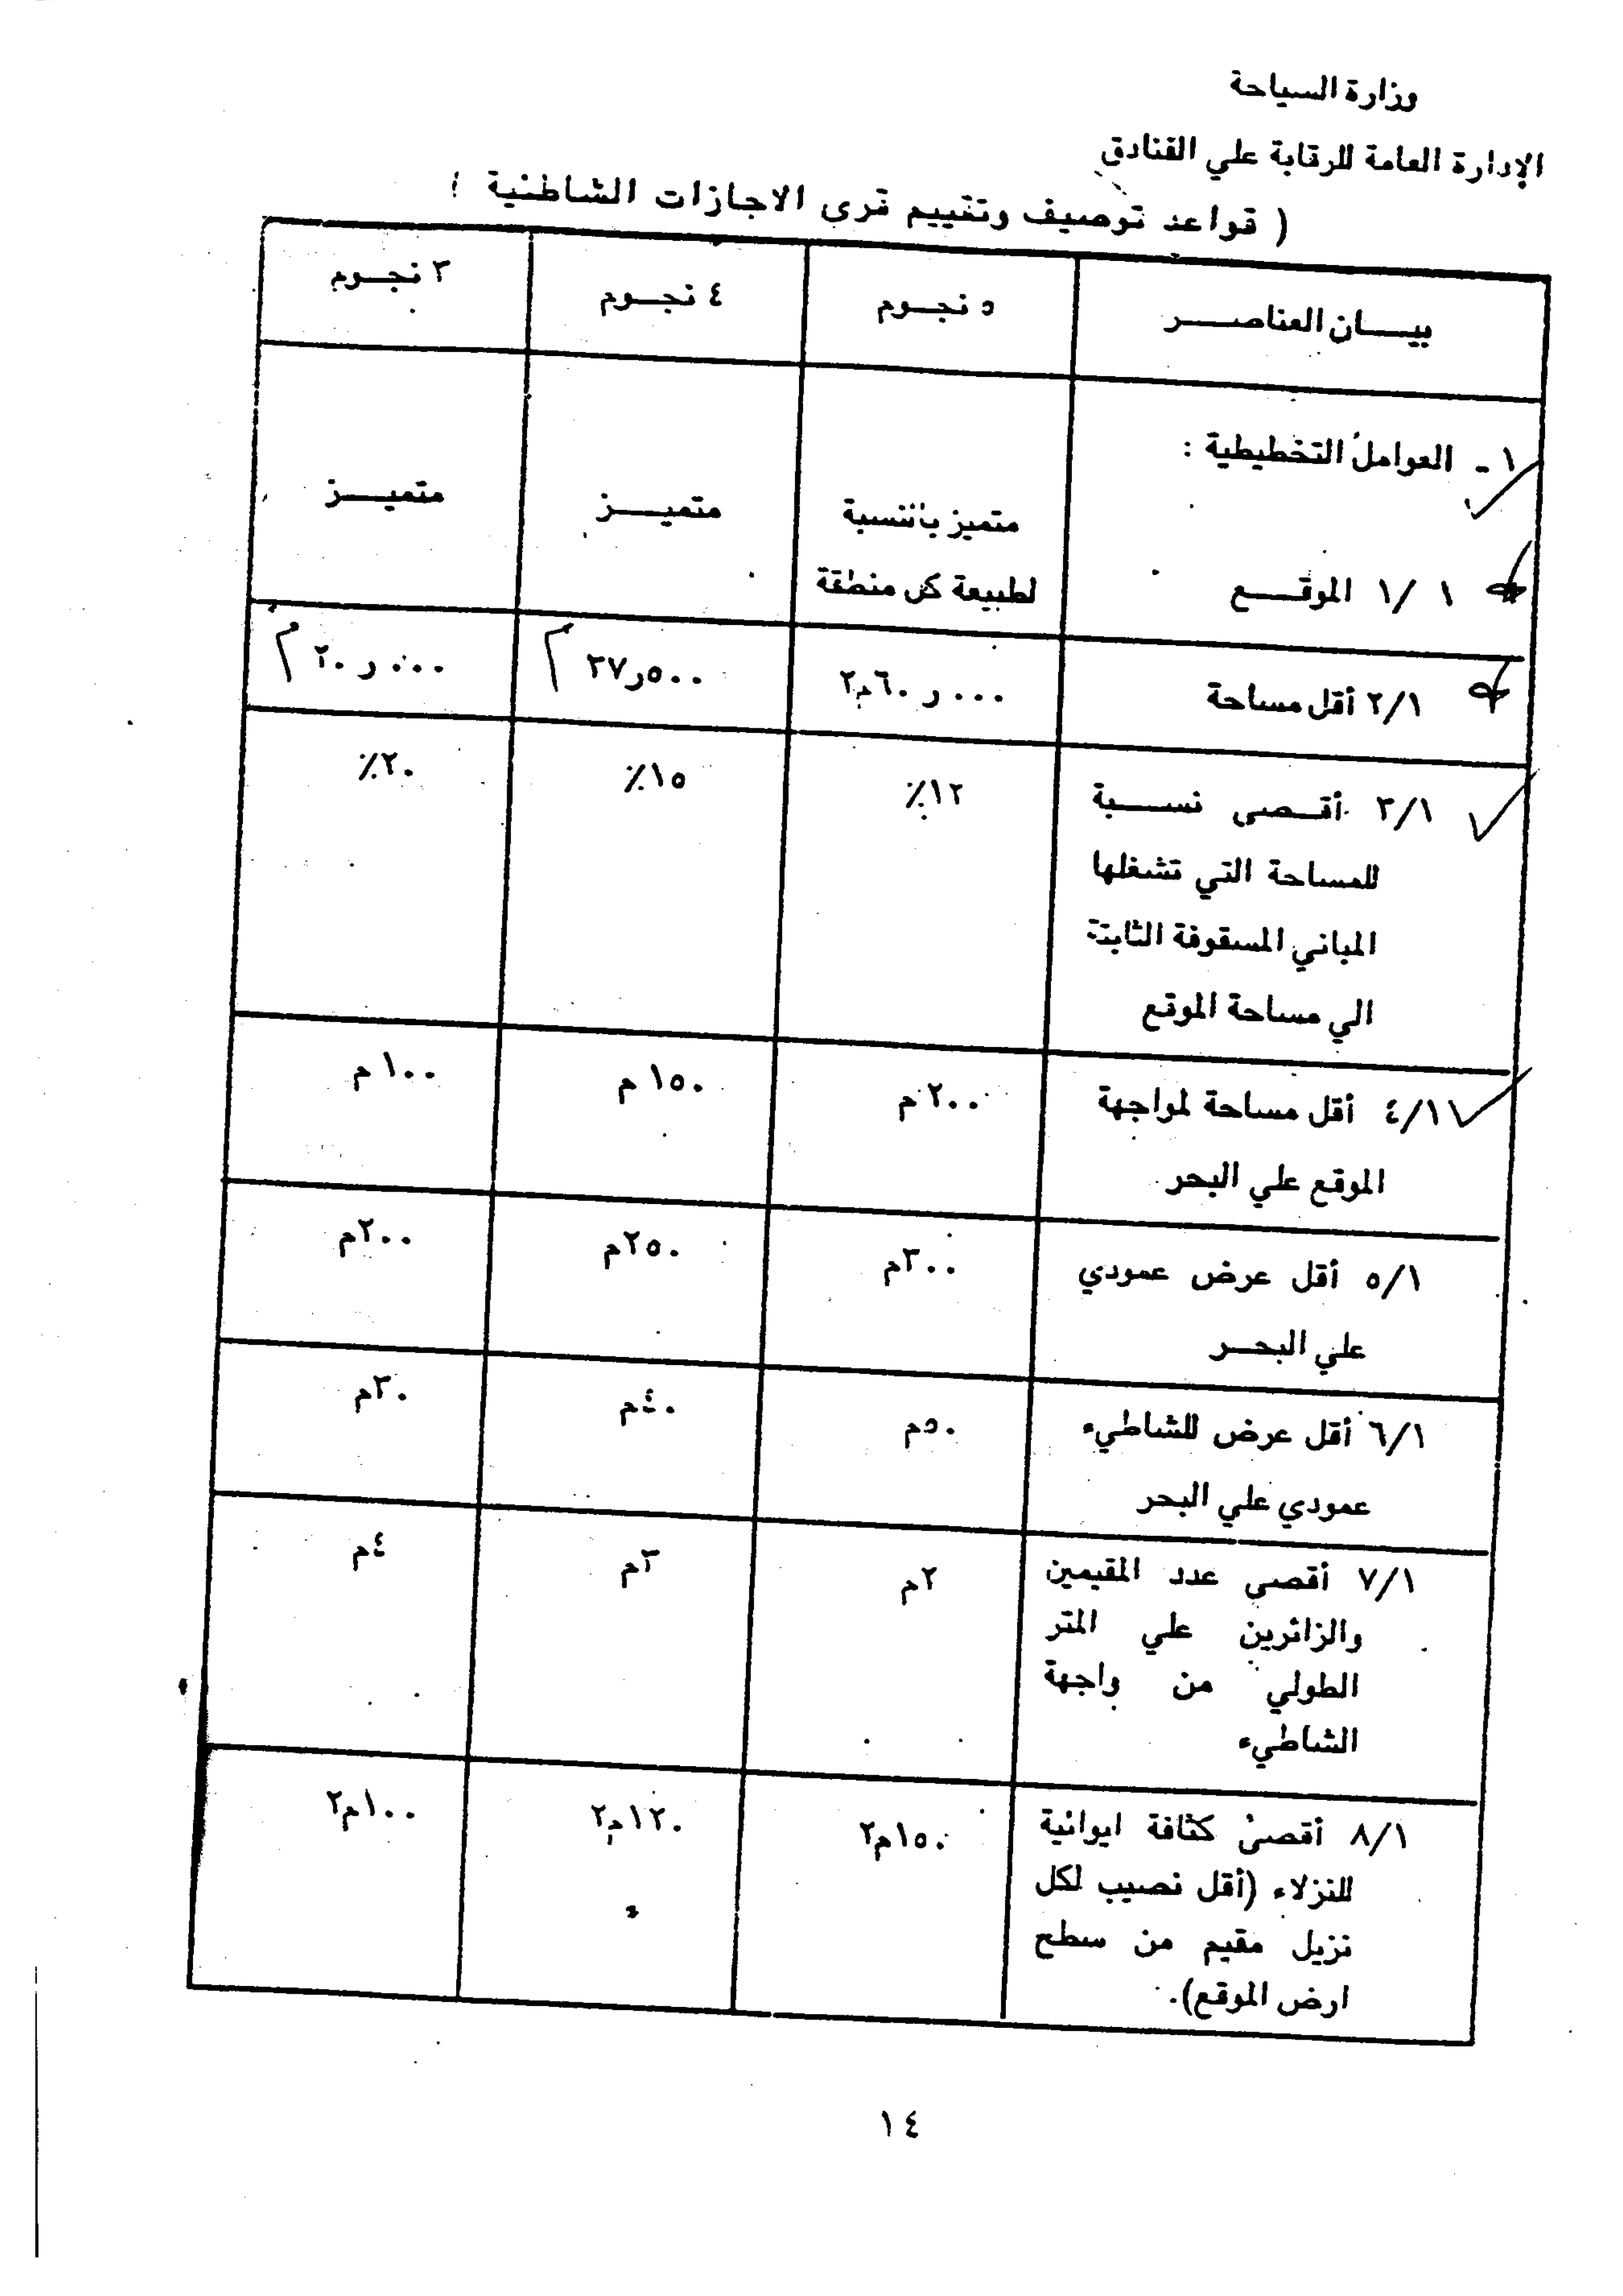 وزارة السياحة
الإدارة العامة للرقابة علي الفنادق
( قواعد توصيف وتقييم قرى الاجازات الشاطئية )
بيــــان العناصــــر
٥ نجــوم
٤ نجــوم
٣ نجــوم
١ - العوامل التخطيطية :
١ /١ الموقــــع
متميز بالنسبة
لطبيعة كل منطقة
متميــــز
متميــــز
٢/١ أقل مساحة
٠٠٠ر٦٠م٢
٥٠٠ر٣٧ م
٠٠٠ر٢٠ م
٣/١ أقــصى نســــبة
للمساحة التي تشغلها
المباني المسقوفة الثابتة
الي مساحة الموقع
١٢٪
١٥٪
٢٠٪
٤/١ أقل مساحة لمواجهة
الموقع علي البحر
٢٠٠م
١٥٠ م
١٠٠ م
٥/١ أقل عرض عمودي
علي البحــر
٣٠٠م
٢٥٠م
٢٠٠م
٦/١ أقل عرض للشاطيء
عمودي علي البحر
٥٠م
٤٠م
٣٠م
٧/١ أقصى عدد المقيمين
والزائرين علي المتر
الطولي من واجهة
الشاطيء
٢م
٣م
٤م
٨/١ أقصى كثافة ايوائية
للنزلاء (أقل نصيب لكل
نزيل مقيم من سطح
ارض الموقع).
١٥٠م٢
١٢٠م٢
١٠٠م٢
١٤